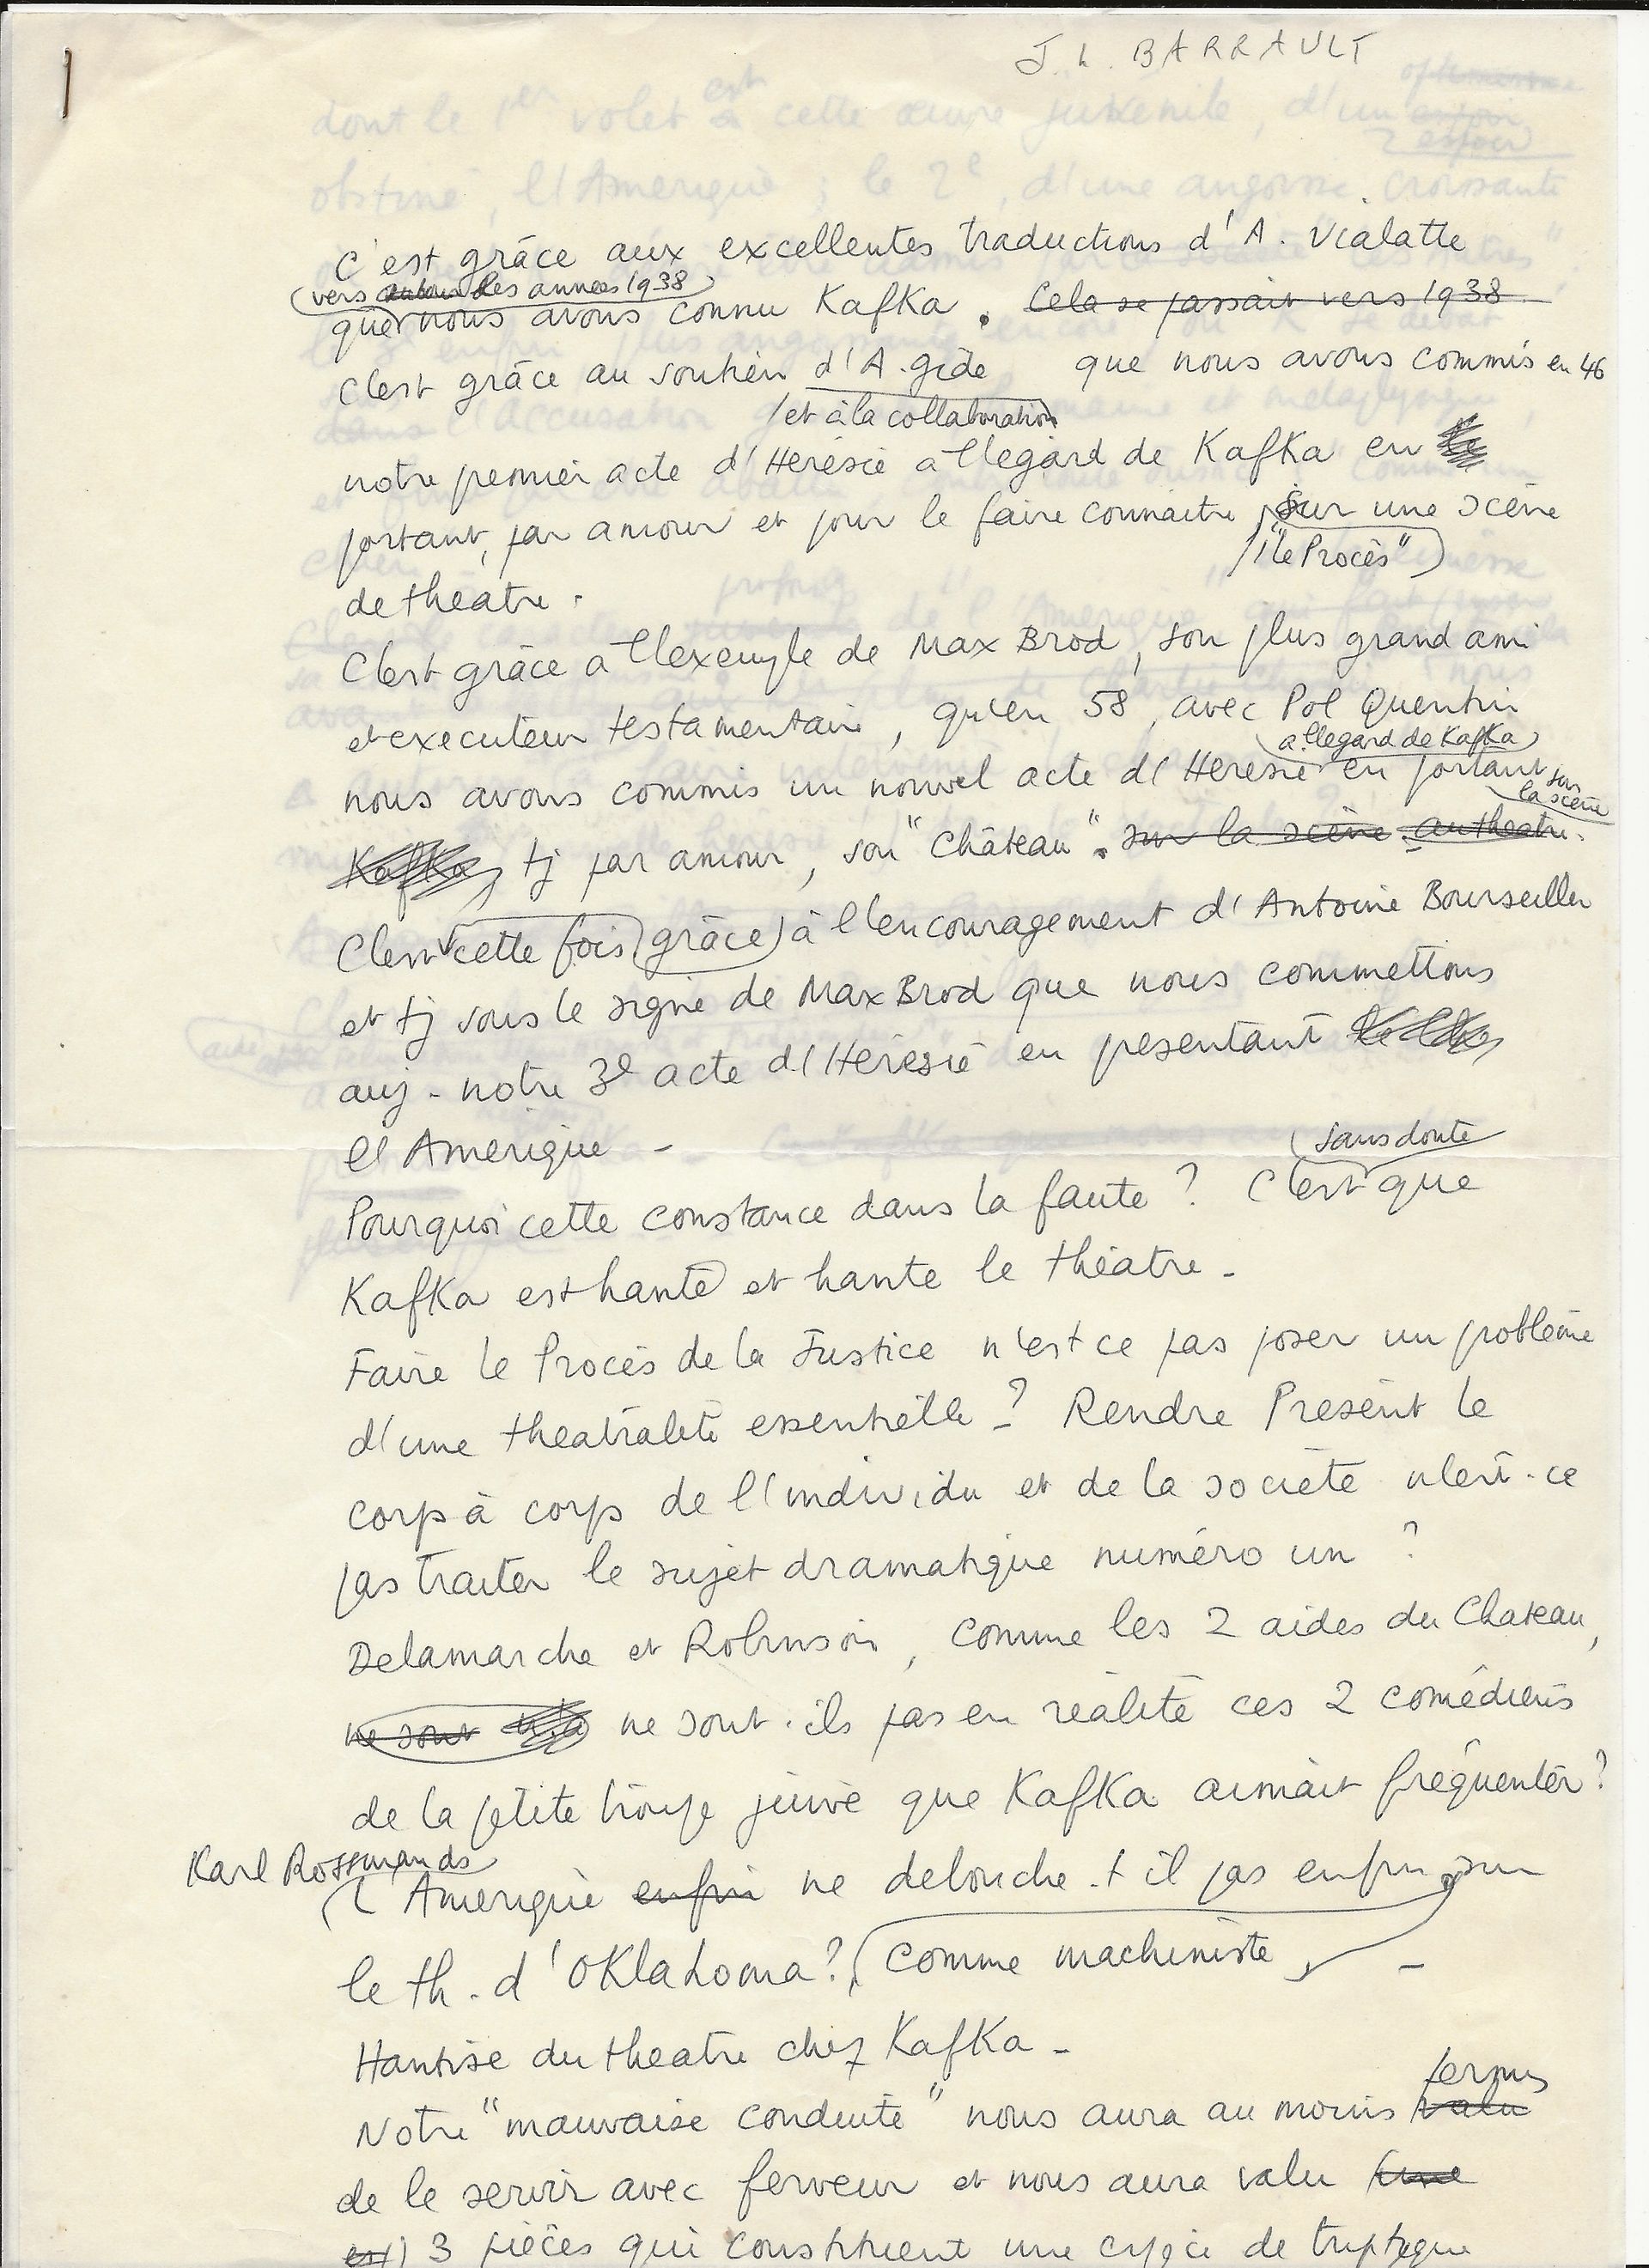 J. L. BARRAULT
C'est grâce aux excellentes traductions d'A. Vialatte
vers autour des annees 1938
que nous avons connu Kafka. Cela se passait vers 1938
C'est grâce au soutien d'A. Gide que nous avons commis en 46
et à la collaboration
notre premier acte d'Heresie a l'egard de Kafka en
portant, par amour et pour le faire connaitre, sur une scène
"le Procès"
de theatre.
C'est grâce a l'exemple de Max Brod, son plus grand ami
et executeur testamentaire, qu'en 58, avec Pol Quentin
a l'egard de Kafka
nous avons commis un nouvel acte d'Heresie en portant sur
la scène
Kafka, tj par amour, son "Château". sur la scène. au theatre.
C'est cette fois grâce à l'encouragement d'Antoine Bourseiller
et tj sous le signe de Max Brod que nous commettons
auj. notre 3e acte d'Héresie en presentant
l'Amerique -
sans doute
Pourquoi cette constance dans la faute ? C'est que
Kafka est hanté et hante le théatre -
Faire le Procès de la Justice n'est ce pas poser un problème
d'une theatralité essentielle ? Rendre Présent le
corps à corps de l'individu et de la société n'est-ce
pas traiter le sujet dramatique numéro un ?
Delamarche et Robinson, comme les 2 aides du Chateau,
ne sont ne sont-ils pas en réalité ces 2 comédiens
de la petite troupe juive que Kafka aimait fréquenter ?
Karl Rossmands
L'Amerique enfin ne debouche-t il pas enfin sur
le th. d'Oklahoma ? comme machiniste -
Hantise du theatre chez Kafka -
permis
Notre "mauvaise conduite" nous aura au moins valu
de le servir avec ferveur et nous aura valu une
3 pièces qui constituent une espèce de triptyque
dont le 1er volet est cette œuvre juvenile, d'un espoir
obstiné, l'Amerique ; le 2e, d'une angoisse croissante